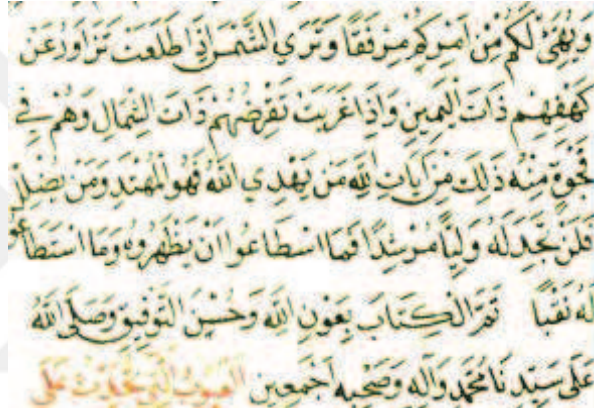 وَيُهَيِّئْ لَكُمْ مِنْ اَمْرِكُمْ مِرْفَقًا وَتَرَي الشَّمْسَ اِذَا طَلَعَتْ تَزَاوَرُ عَنْ
كَهْفِهِمْ ذَاتَ الْيَمِينِ وَاِذَا غَرَبَتْ تَقْرِضُهُمْ ذَاتَ الشِّمَالِ وَهُمْ فِي
فَجْوَةٍ مِنْهُ ذَلِكَ مِنْ اَيَاتِ اللّٰهِ مَنْ يَهْدِي اللّٰهُ فَهُوَ الْمُهْتَدِ وَمَنْ يُضْلِلْ
فَلَنْ تَجِدَ لَهُ وَلِيًّا مُرْشِدًا فَمَا اسْطَاعُوا اَنْ يَظْهَرُوهُ وَمَا اسْتَطَاعُوا
لَهُ نَقْبًا تَمَّ الْكِتَابَ بِعَوْنِ اللّٰهِ وَحُسْنِ التَّوْفِيقِ وَصَلَّى اللّٰهُ
عَلَى سَيِّدِنَا مُحَمَّدٍ وَآلِهِ وَصَحْبِهِ اَجْمَعِينَ الْعُيُوبُ الَّتِي تَحْدُثُ عَلَى